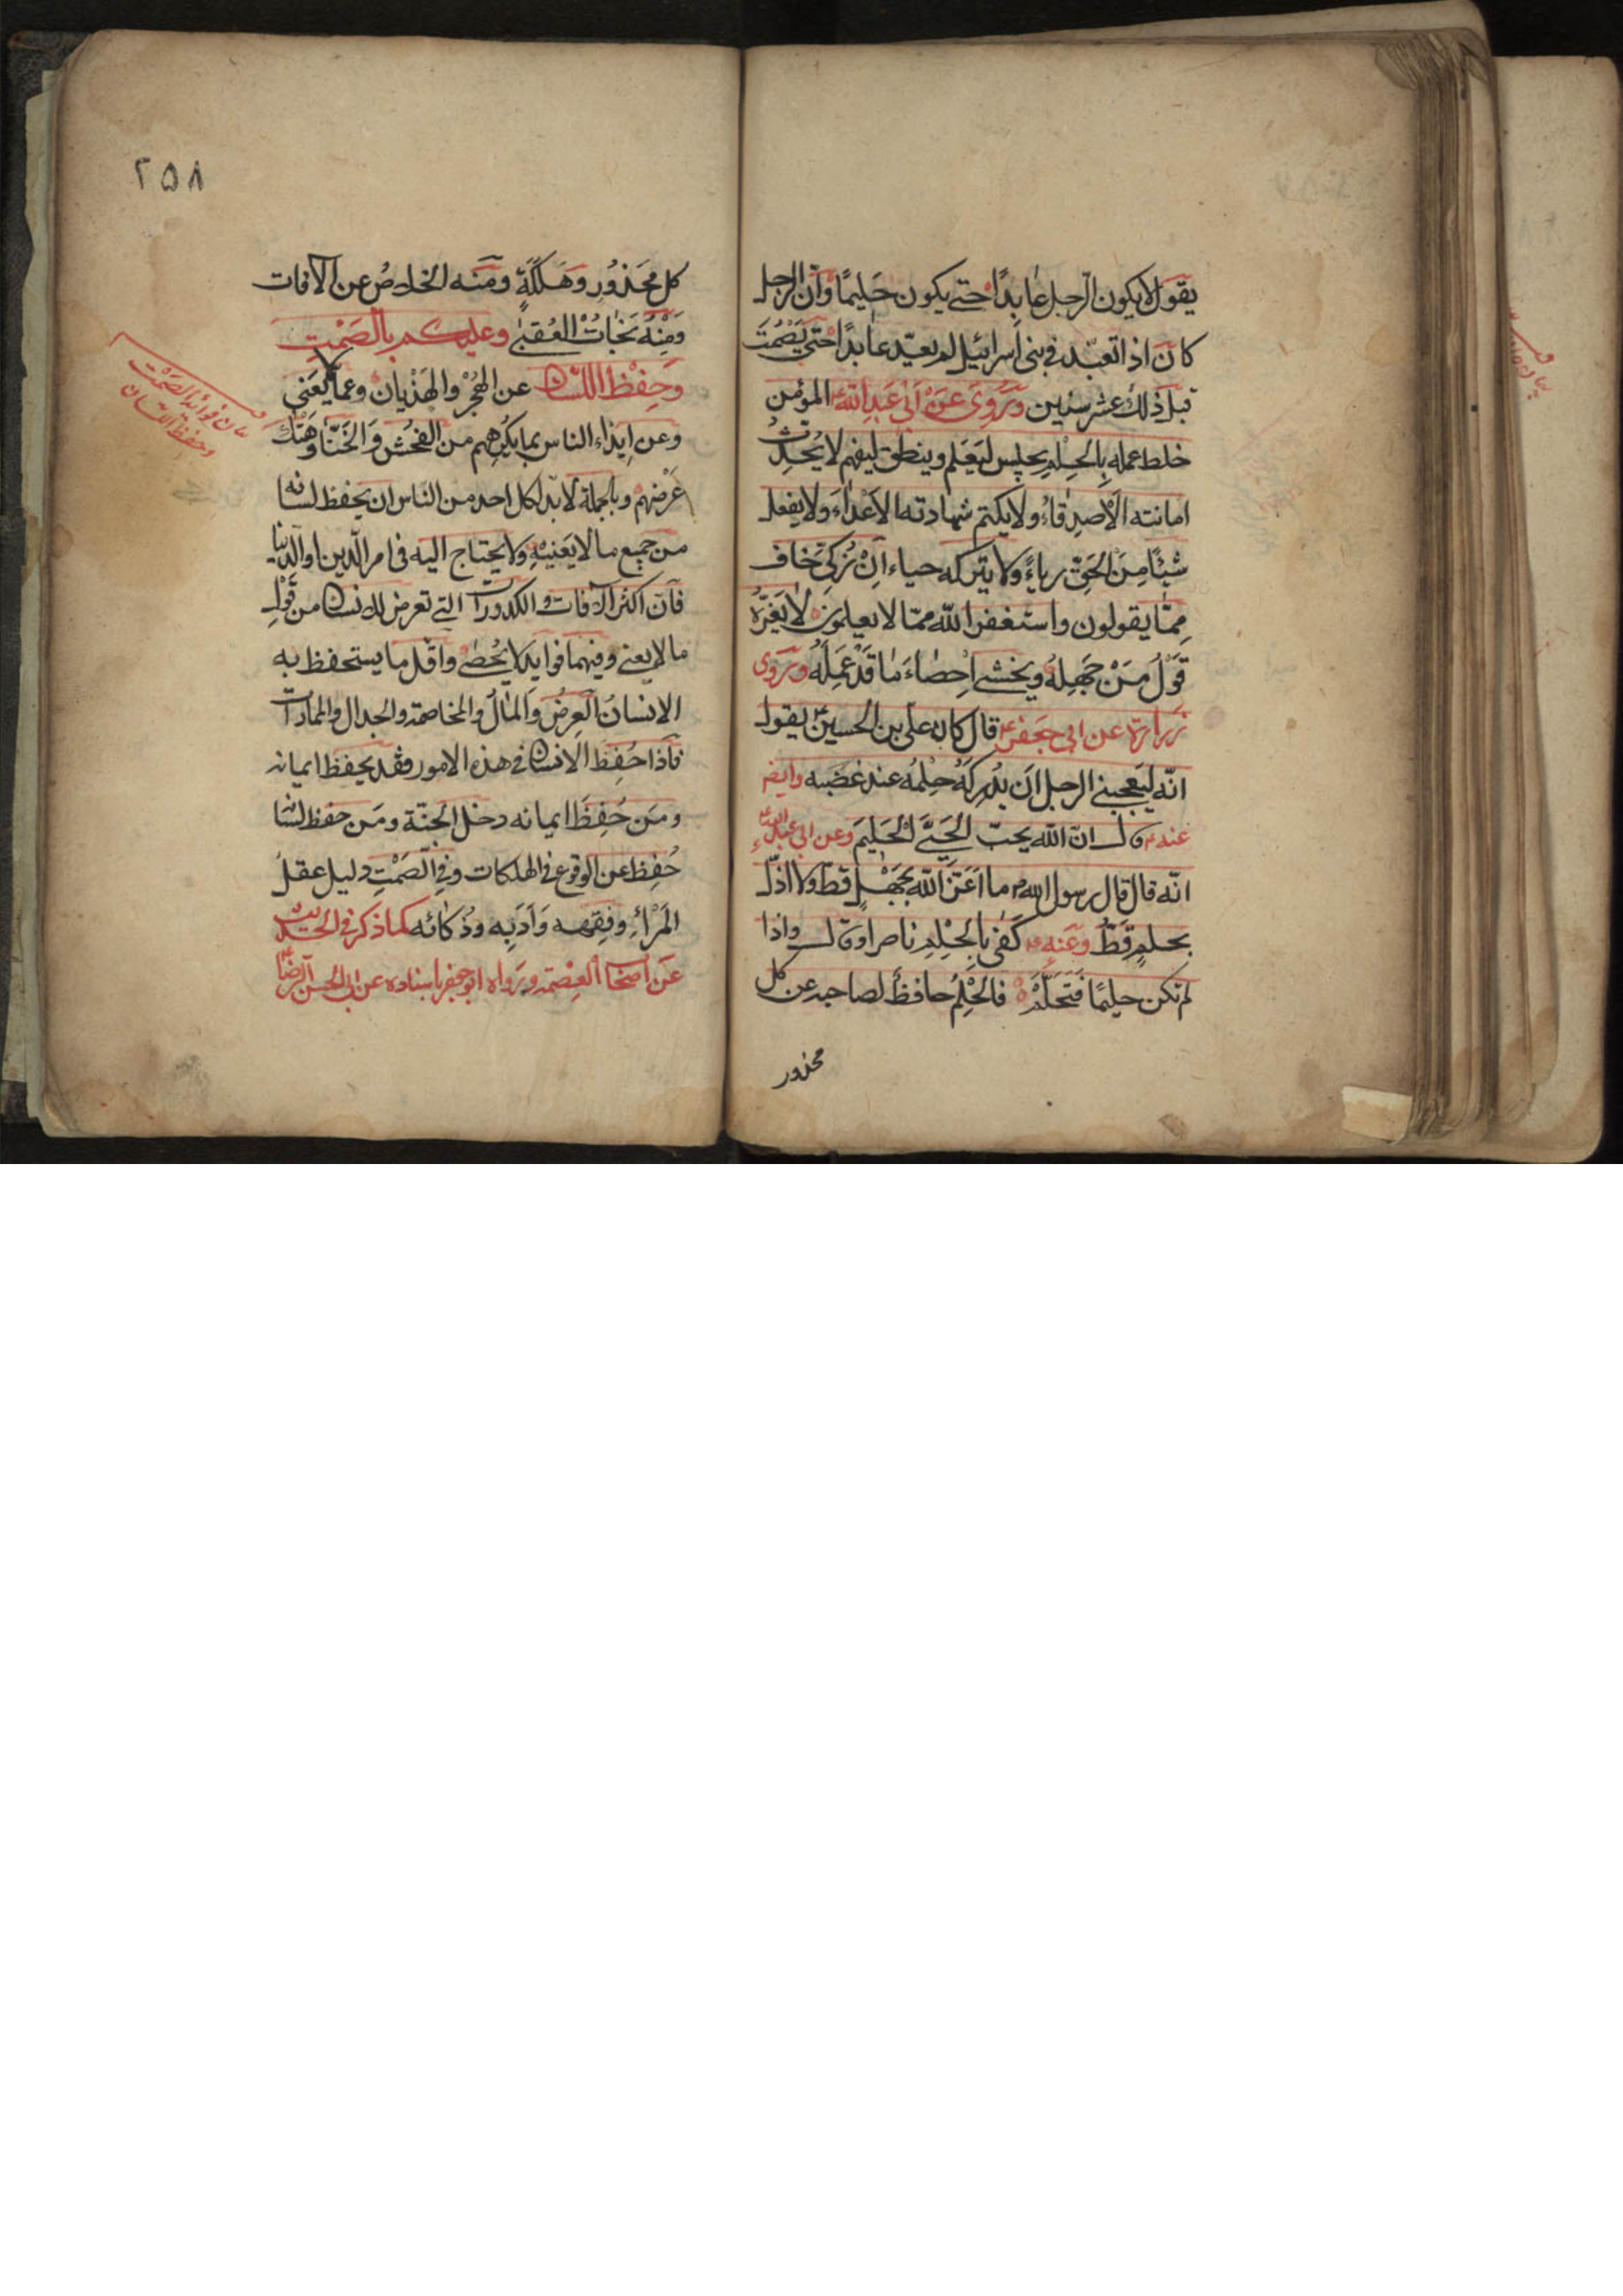 يقول لا يكون الرجل عابدًا حتى يكون حَليمًا وانّ الرجل
كان اذا تعبّد في بنى اسرائيل لم يعدّ عابدًا حتى يَصْمُتَ
قبل ذلك عشر سنين ورُوِىَ عَنْ اَبى عَبدِ اللهِ المؤمن
خلط عمله بِالحِلْمِ يجلِس لِيَعْلم وينطق ليفهم لا يُحدِثُ
امانته الْاَصدِقاءُ ولا يكتم شهادته الاَعْداءَ ولا يفعل
شيئًا مِنَ الحَقّ رياءً ولا يتركه حياء اِنْ زُكِّىَ خاف
مِمّا يقولون واستغفر اللّه ممّا لا يعلمون لا يَغرّهُ
قَوْلُ مَنْ جَهِلهُ ويخشى اِحصٰاءَ مٰا قَدْ عَمِلَهُ ورَوى
زرارة عن ابى جعفر ع قال كان على بن الحسين ع يقول
انّه ليَعجبنى الرجل اَن يُدركهُ حِلمُه عند غضبه وايض
عنه ع قال انّ اللّه يحبّ الحَيىَّ الْحَليمَ وعن ابى عبد الله ع
انّه قال قال رسول الله ص ما اَعَزَّ اللّه بجَهْلٍ قطّ ولا اذلّ
بحلمٍ قَطُّ وعَنه ص كَفى بِالحِلْمِ ناصرا وقال واذا
لم تكن حليمًا فَتَحَلَّمْ فالحِلْمُ حافظٌ لصاحبه عن كل
محذور
٢٥٨
كل مَحَذُورٍ وهَلَكَةٍ ومَنه الخلاصُ عن الآفات
وَمِنْهُ نَجٰاتُ الْعُقبىٰ وعليكم بالصَمْتِ
وَحِفْظ اللسان عن الهُجْرِ والهَذْيان وعمّا لا يعَنى
وعن اِيذاء الناس بما يكرههم من الفحُش وَالخَنَا وهَتْك
عَرْضهم وبالجملة لابدّ لكل احد من الناس ان يحفظ لسانه
من جميع ما لا يَعْنيهِ ولا يحتاج اليه فى امر الدّين او الدّنيا
فانّ اكثر الآفات والكدورات التى تعرض للانسان من قَوْلِ
ما لا يعنى وفيهما فوايد لا يُحصىٰ واقل ما يستحفظ به
الانسان العِرضُ والمٰالُ والمخاصمة والجدال والممارات
فاذا حُفِظَ الانسان فى هذه الامور فقد يحفظ ايمانه
ومَن حُفِظَ ايمانه دخل الجنّة ومَن حفظ لسانه
حُفِظ عن الوقوع فى الهلكات وفى الصَمْتِ دليل عقل
المَرْأِ وفِقهه وَاَدَبِه وذَكائه كما ذكر فى الحديث
عَن اصحاب العِصْمة ورواه ابو جعفر باسناده عن ابى الحسن الرضا ع
بيان فوائد الصمت
وحفظ اللسان